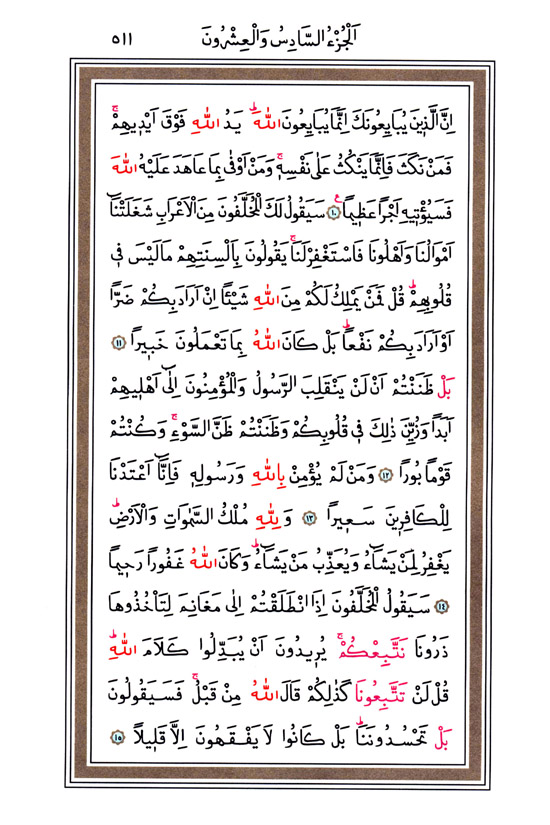 اَلْجُزْءُ السَّادِسُ وَالْعِشْرُونَ ٥١١
اِنَّ الَّذ۪ينَ يُبَايِعُونَكَ اِنَّمَا يُبَايِعُونَ اللّٰهَۜ يَدُ اللّٰهِ فَوْقَ اَيْد۪يهِمْۚ
فَمَنْ نَكَثَ فَاِنَّمَا يَنْكُثُ عَلٰى نَفْسِه۪ۚ وَمَنْ اَوْفٰى بِمَا عَاهَدَ عَلَيْهُ اللّٰهَ
فَسَيُؤْت۪يهِ اَجْرًا عَظ۪يمًا۟ ﴿١٠﴾ سَيَقُولُ لَكَ الْمُخَلَّفُونَ مِنَ الْاَعْرَابِ شَغَلَتْنَٓا
اَمْوَالُنَا وَاَهْلُونَا فَاسْتَغْفِرْ لَنَاۚ يَقُولُونَ بِاَلْسِنَتِهِمْ مَا لَيْسَ ف۪ي
قُلُوبِهِمْۜ قُلْ فَمَنْ يَمْلِكُ لَكُمْ مِنَ اللّٰهِ شَيْـًٔا اِنْ اَرَادَ بِكُمْ ضَرًّا
اَوْ اَرَادَ بِكُمْ نَفْعًاۜ بَلْ كَانَ اللّٰهُ بِمَا تَعْمَلُونَ خَب۪يرًا ﴿١١﴾
بَلْ ظَنَنْتُمْ اَنْ لَنْ يَنْقَلِبَ الرَّسُولُ وَالْمُؤْمِنُونَ اِلٰٓى اَهْل۪يهِمْ
اَبَدًا وَزُيِّنَ ذٰلِكَ ف۪ي قُلُوبِكُمْ وَظَنَنْتُمْ ظَنَّ السَّوْءِۚ وَكُنْتُمْ
قَوْمًا بُورًا ﴿١٢﴾ وَمَنْ لَمْ يُؤْمِنْ بِاللّٰهِ وَرَسُولِه۪ فَاِنَّٓا اَعْتَدْنَا
لِلْكَافِر۪ينَ سَع۪يرًا ﴿١٣﴾ وَلِلّٰهِ مُلْكُ السَّمٰوَاتِ وَالْاَرْضِۜ
يَغْفِرُ لِمَنْ يَشَٓاءُ وَيُعَذِّبُ مَنْ يَشَٓاءُۜ وَكَانَ اللّٰهُ غَفُورًا رَح۪يمًا
﴿١٤﴾ سَيَقُولُ الْمُخَلَّفُونَ اِذَا انْطَلَقْتُمْ اِلٰى مَغَانِمَ لِتَأْخُذُوهَا
ذَرُونَا نَتَّبِعْكُمْۚ يُر۪يدُونَ اَنْ يُبَدِّلُوا كَلَامَ اللّٰهِۜ
قُلْ لَنْ تَتَّبِعُونَا كَذٰلِكُمْ قَالَ اللّٰهُ مِنْ قَبْلُۚ فَسَيَقُولُونَ
بَلْ تَحْسُدُونَنَاۜ بَلْ كَانُوا لَا يَفْقَهُونَ اِلَّا قَل۪يلًا ﴿١٥﴾